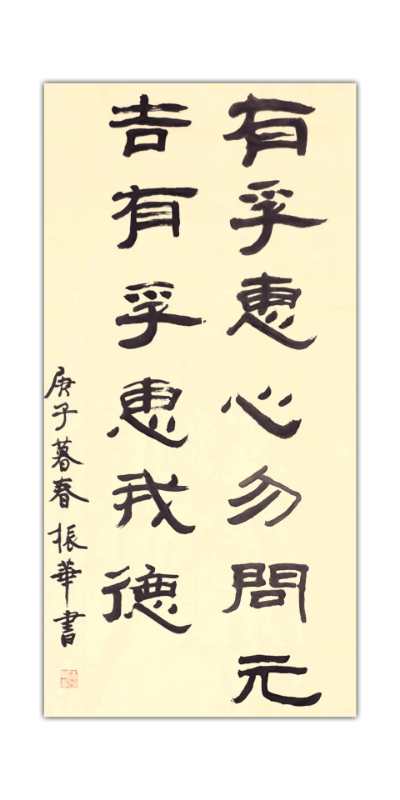 有孚惠心勿問元
吉有孚惠我德
庚子暮春振華書